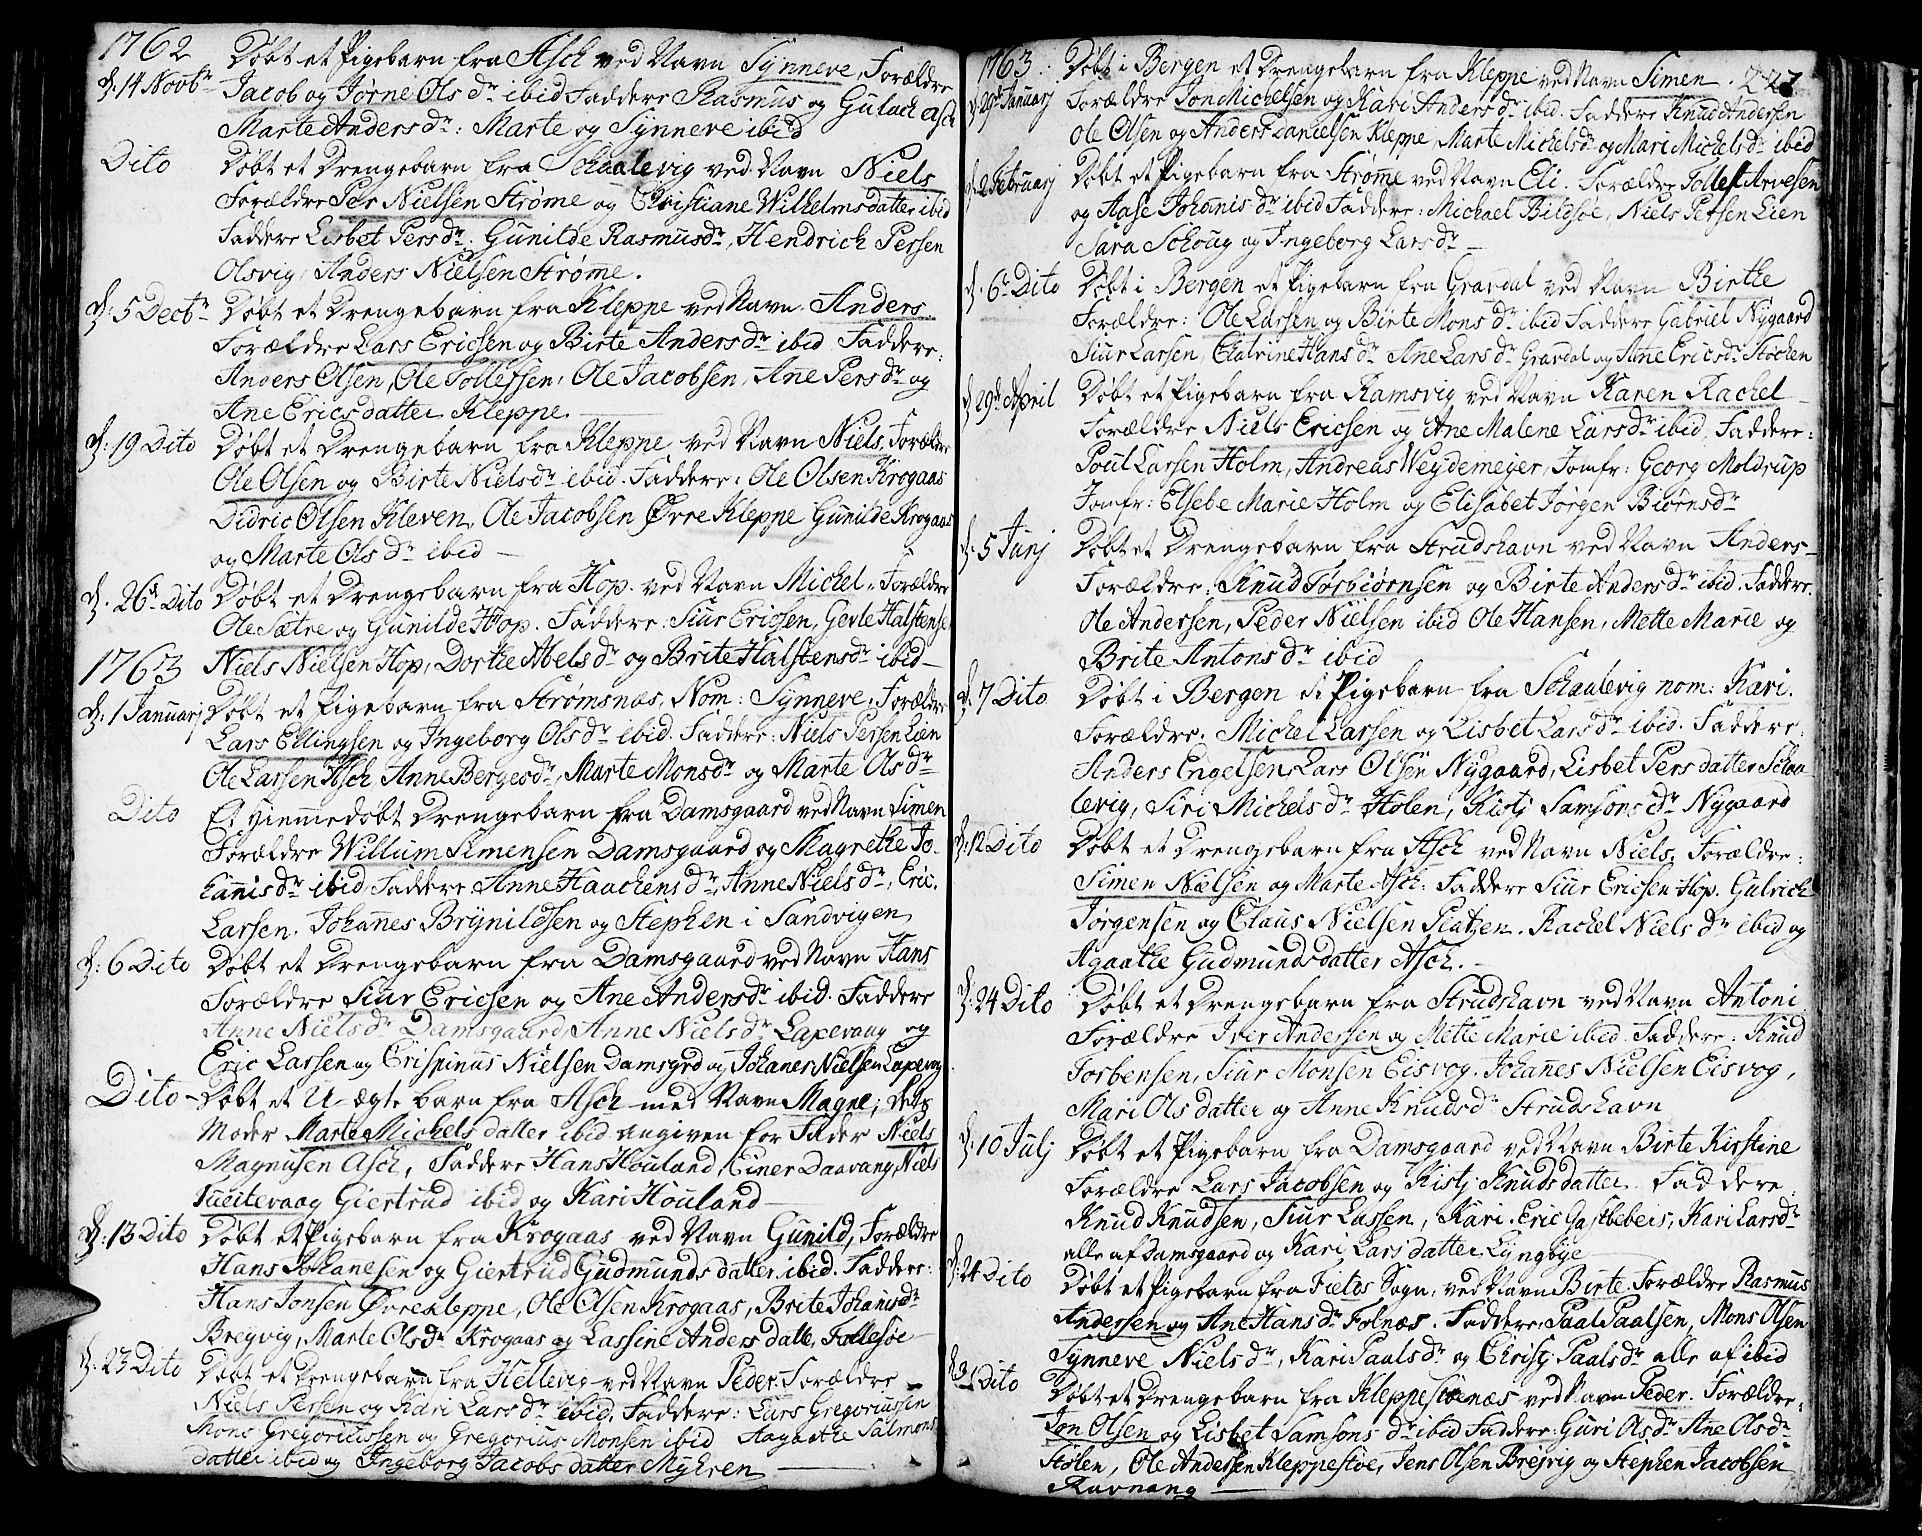 1762
d: 14 Novbr
Døbt et Pigebarn fra Asch ved Navn Synneve, Forældre
Jacob og Jørne Ols dr ibid Faddere Rasmus og Gulach Asch
Marte Anders dr: Marte og Synneve ibid
Dito
Døbt et Drengebarn fra Schaalevig ved Navn Niels
Forældre Per Nielsen Strøme og Christiane Wilhelmsdatter ibid
Faddere Lisbet Pers dr: Gunilde Rasmusdr, Hendrich Persen
Olsvig, Anders Nielsen Strøme.
d: 5 Decbr
Døbt et Drengebarn fra Kleppe ved Navn Anders
Forældre Lars Ericsen og Birte Anders dr ibid Faddere:
Anders Olsen, Ole Tollefsen, Ole Jacobsen, Ane Pers dr og
Ane Ericsdatter Kleppe.
d: 19 Dito
Døbt et Drengebarn fra Kleppe ved Navn Niels, Forældre
Ole Olsen og Birte Nielsdr ibid. Faddere: Ole Olsen Krogaas
Didric Olsen Kleven, Ole Jacobsen Øvre Kleppe Gunilde Krogaas
og Marte Ols dr ibid
d. 26 Dito
Døbt et Drengebarn fra Hop. ved Navn Michel, Forældre
Ole Sætre og Gunilde Hop. Faddere Siur Ericsen, Gevle Halstense
1763
Niels Nielsen Hop, Dorthe Abels dr og Brite Halstensdr ibid
d: 1 Januarj
Døbt et Pigebarn fra Strømsnæs, Nom: Synneve, Forældre
Lars Ellingsen og Ingeborg Ols dr ibid. Faddere: Niels Persen Lien
Ole Larsen Asch, Anne Bergesdr, Marte Monsdr og Marte Ols dr
Dito
Et Hiemmedøbt Drengebarn fra Damsgaard ved Navn Simen
Forældre Willum Simensen Damsgaard og Magrethe Jo-
hannisdr ibid Faddere Anne Haachens dr, Anne Niels dr, Eric
Larsen, Johannes Brynildsen og Stephen i Sandvigen
d: 6 Dito
Døbt et Drengebarn fra Damsgaard ved Navn Hans
Forældre Siur Ericsen og Ane Andersdr ibid. Faddere
Anne Niels dr Damsgaard, Anne Niels dr Laxevaag og
Eric Larsen og Crispinus Nielsen Damsgrd og Johanes Nielsen Laxevog
Dito
Døbt et U-ægte barn fra Asch med Navn Magne; dets
Moder Marte Michels datter ibid angiven for Fader Niels
Magnusen Asch, Faddere Hans Houland, Einer Daavang, Niels
Giertrud ibid og Kari Houland
d: 13 Dito
Døbt et Pigebarn fra Krogaas ved Navn Gunild, Forældre
Hans Johanesen og Giertrud Gudmunds datter ibid. Faddere:
Hans Jonsen Øvre Kleppe, Ole Olsen Krogaas, Brite Johanisdr
Bregvig, Marte Olsdr Krogaas og Lassine Anders datt. Follesøe
d: 23 Dito
Døbt et Drengebarn fra Hellevig ved Navn Peder. Forældre
Niels Persen og Kari Lars dr ibid, Faddere: Lars Gregoriussen
Mons Gregoriussen og Gregorius Monsen ibid Aagathe Salmons
datter ibid og Ingeborg Jacobs datter Myhren
1763
227
d: 29 Januarj
Døbt i Bergen et Drengebarn fra Kleppe ved Navn Simen
Forældre Jon Michelsen og Kari Anders dr ibid. Faddere Knud Andersen
Ole Olsen og Anders Danielsen Kleppe, Marte Michelsdr og Mari Michelsdr ibid
d. 2 Februarj
Døbt et Pigebarn fra Strøme ved Navn Eli. Forældre Tollef Arvesen
og Aase Johanis dr ibid Faddere: Michael Bildsøe, Niels Persen Lien
Sara Schoug og Ingeborg Larsdr
d. 6 Dito
Døbt i Bergen et Pigebarn fra Gravdal ved Navn Birthe
Forældre: Ole Larsen og Birte Mons dr ibid Faddere Gabriel Nygaard
Siur Larsen, Chatrine Hans dr Ane Lars dr Gravdal og Anne Erics dr Stochen
d 29 April
Døbt et Pigebarn fra Ramsvig ved Navn Karen Rachel
Forældre Niels Ericsen og Ane Malene Larsdr ibid, Faddere:
Poul Larsen Holm, Andreas Weydemeyer, Jomfr: Georg Moldrup
Jomfr: Elsebe Marie Holm og Elisabet Jørgen Biørnsdr
d: 5 Junj
Døbt et Drengebarn fra Strudshavn ved Navn Anders
Forældre: Knud Torbiørnsen og Birte Anders dr ibid. Faddere
Ole Andersen, Peder Nielsen ibid Ole Hansen, Mette Marie og
Brite Antons dr ibid
d. 7 Dito
Døbt i Bergen et Pigebarn fra Schaalevig nom: Kari.
Forældre. Michel Larsen og Lisbet Lars dr ibid. Faddere:
Anders Engelsen, Lars Olsen Nygaard, Lisbet Pers datter Schaa-
levig, Siri Michels dr Holen, Kistj Samsons dr Nygaard
d. 12 Dito
Døbt et Drengebarn fra Asch ved Navn Niels, Forældre:
Simen Nielsen og Marte Asch: Faddere Siur Ericsen Hop, Gulrich
Jørgensen og Claus Nielsen Platzen. Rachel Niels dr ibid og
Agaathe Gudmundsdatter Asch.
d. 24 Dito
Døbt et Drengebarn fra Strudshavn ved Navn Antoni
Forældre Iver Andersen og Mette Marie ibid. Faddere: Knud
Torbensen, Siur Monsen Eisvog. Johannes Nielsen Eisvog,
Mari Ols datter og Anne Knudsdr Strudshavn
d. 10 Julj
Døbt et Pigebarn fra Damsgaard ved Navn Birte Kirstine
Forældre Lars Jacobsen og Kistj Knudsdatter Faddere
Knud Knudsen, Siur Lassen, Kari Eric Gastbebers, Kari Larsdr
alle af Damsgaard og Kari Lars datter Lyngbye
d. 24 Dito
Døbt et Pigebarn fra Fields Sogn, ved Navn Birte. Forældre Rasmus
Andersen og Ane Hans dr Folnæs. Faddere: Paal Paalsen, Mons Olsen
Synneve Niels dr, Kari Paals dr og Christj Paals dr alle af ibid
d 31 Dito
Døbt et Drengebarn fra Kleppestønæs ved Navn Peder. Forældre:
Jon Olsen og Lisbet Samsons dr ibid Faddere: Guri Ols dr Ane Ols dr
Stølen, Ole Andersen Kleppestøe, Jens Olsen Brejvig og Stephen Jacobsen
Ravnang